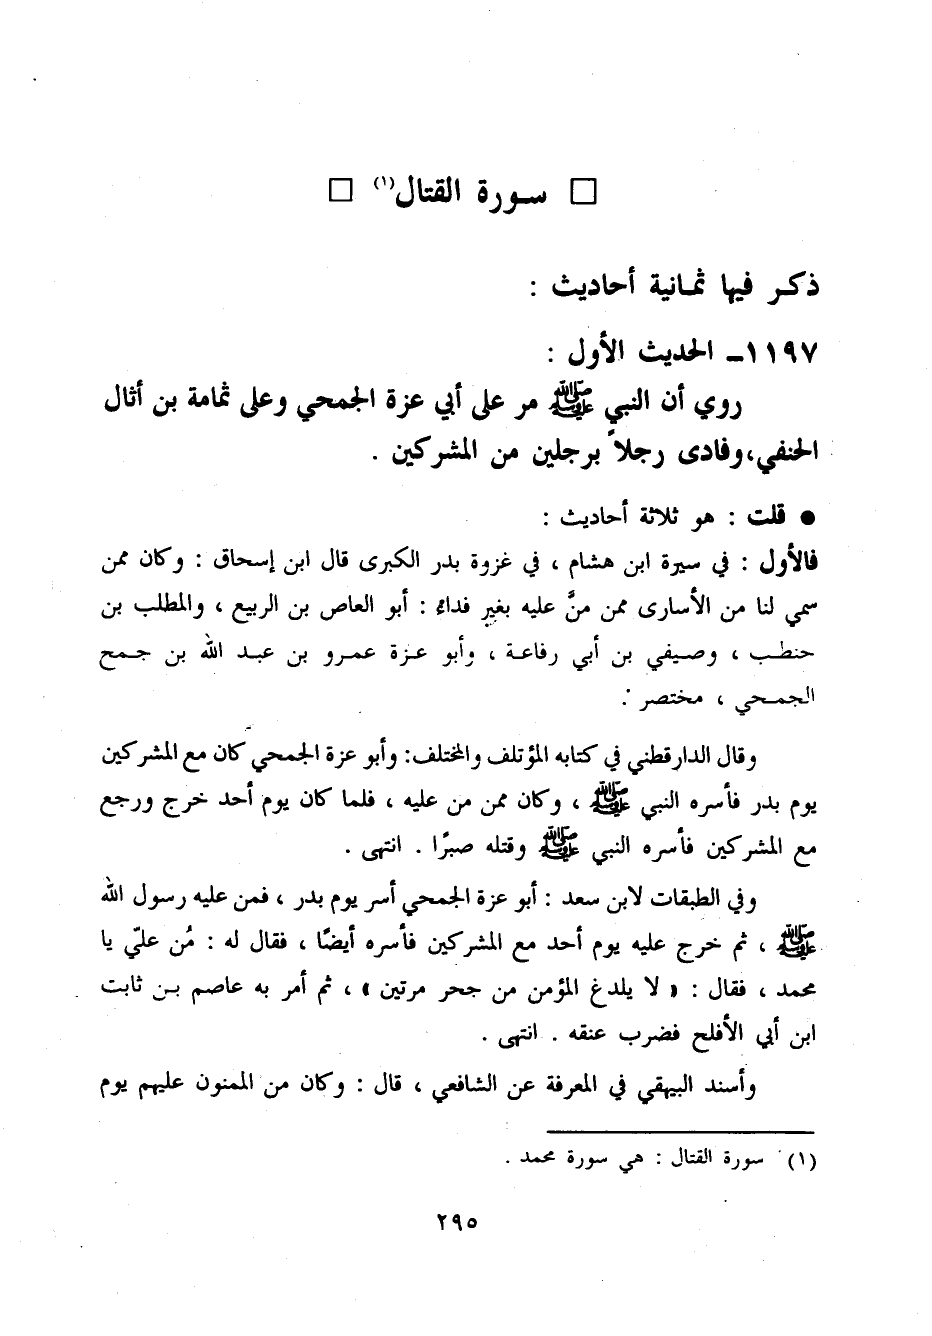 □ سورة القتال(١) □
ذكر فيها ثمانية أحاديث :
١١٩٧ـ الحديث الأول :
روي أن النبي ﷺ مر على أبي عزة الجمحي وعلى ثمامة بن أثال
الحنفي،وفادى رجلاً برجلين من المشركين .
● قلت : هو ثلاثة أحاديث :
فالأول : في سيرة ابن هشام ، في غزوة بدر الكبرى قال ابن إسحاق : وكان ممن
سمي لنا من الأسارى ممن منَّ عليه بغير فداء : أبو العاص بن الربيع ، والمطلب بن
حنطب ، وصيفي بن أبي رفاعة ، وأبو عزة عمرو بن عبد الله بن جمح
الجمحي ، مختصر .
وقال الدارقطني في كتابه المؤتلف والمختلف: وأبو عزة الجمحي كان مع المشركين
يوم بدر فأسره النبي ﷺ ، وكان ممن من عليه ، فلما كان يوم أحد خرج ورجع
مع المشركين فأسره النبي ﷺ وقتله صبرًا . انتهى .
وفي الطبقات لابن سعد : أبو عزة الجمحي أسر يوم بدر ، فمن عليه رسول الله
ﷺ ، ثم خرج عليه يوم أحد مع المشركين فأسره أيضًا ، فقال له : مُن عليّ يا
محمد ، فقال : « لا يلدغ المؤمن من جحر مرتين » ، ثم أمر به عاصم بن ثابت
ابن أبي الأفلح فضرب عنقه . انتهى .
وأسند البيهقي في المعرفة عن الشافعي ، قال : وكان من الممنون عليهم يوم
(١) سورة القتال : هي سورة محمد .
٢٩٥